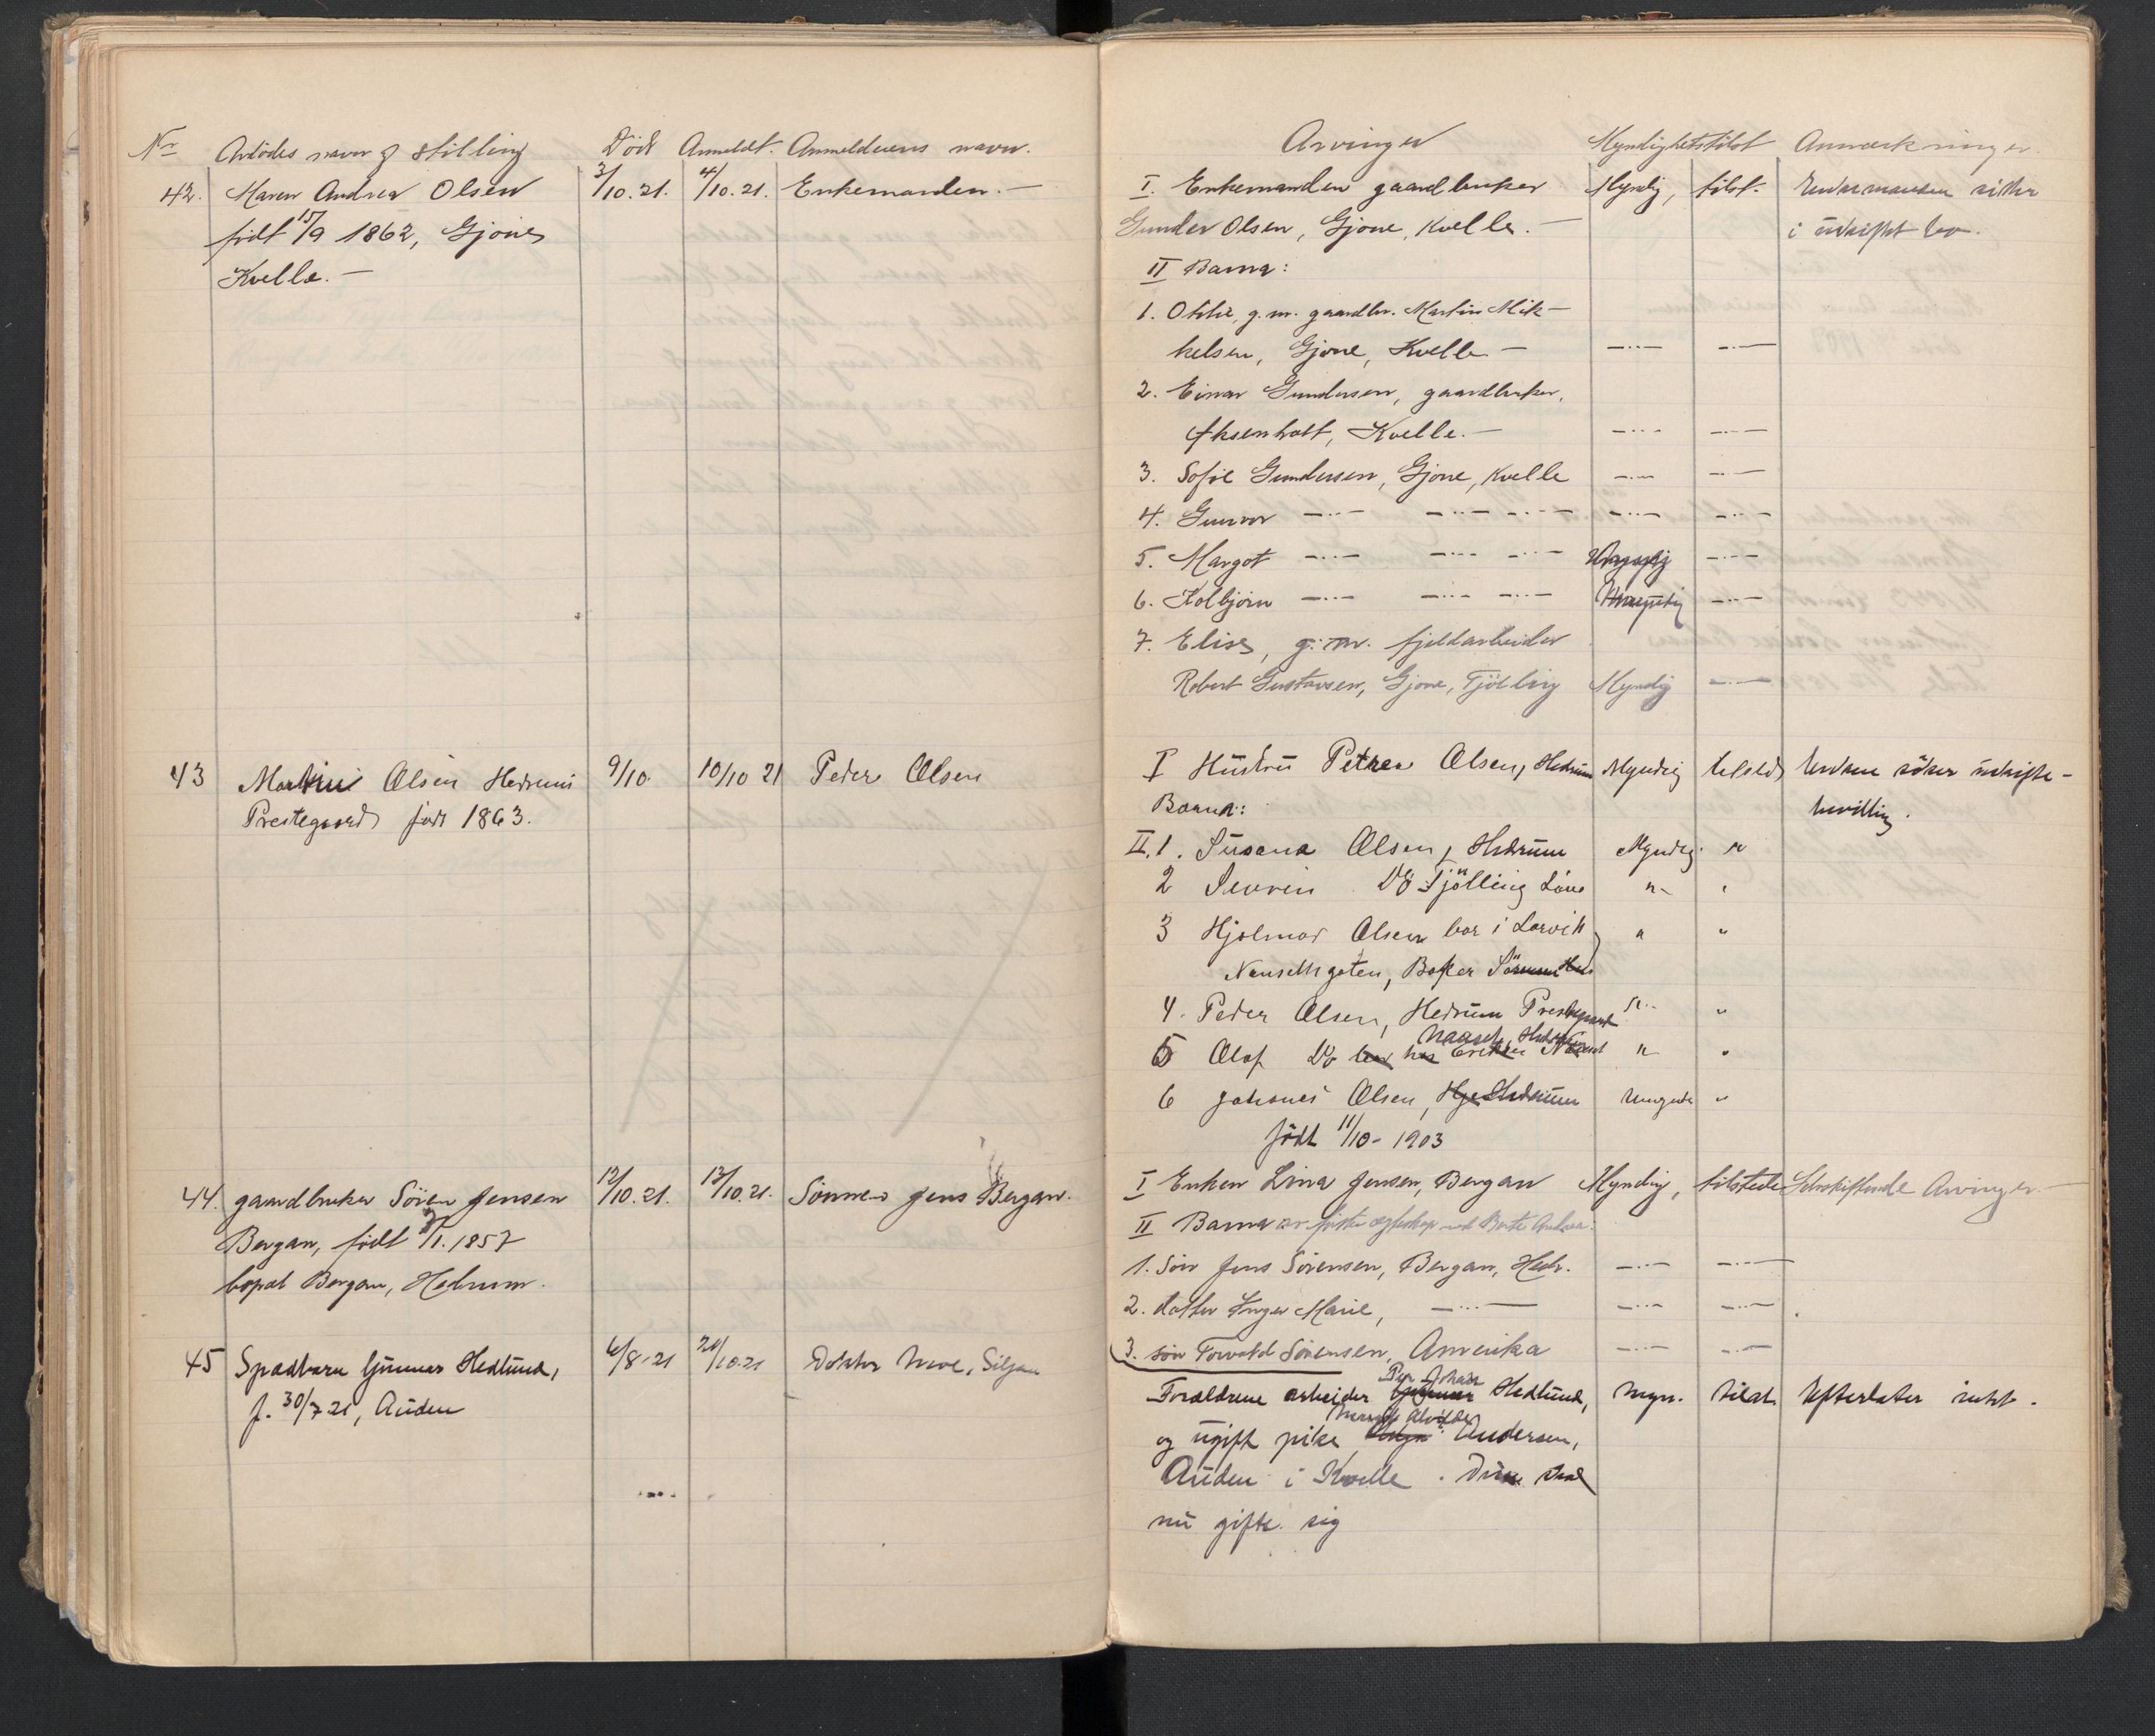 Nr Avdödes navn og stilling Död Anmeldt. Anmelderens navn.
42. Maren Andrea Olsen 3/10.21. 4/10.21. Enkemanden. —
født 17/9 1862, Gjone,
Kvelle. —
43 Martin Olsen Hedrum 9/10. 10/10 21 Peder Olsen
Prestegaard född 1863.
44. gaardbruker Sören Jensen 12/10.21. 13/10.21. Sönnen Jens Bergan.
Bergan, född /1.1857
bopæl Bergan, Hedrum.
45 Spædbarn Gunnar Hedlund, 6/8-21 20/10.21 Doktor Siljan
f. 30/7 21, Auden
Arvinger Myndighetstilst Anmærkninger.
I. Enkemanden gaardbruker Myndig, tilst. Enkemanden sitter
Gunder Olsen, Gjone, Kvelle. — i uskiftet bo.
II Barna:
1. Othilie, g.m. gaardbr. Martin Mik-
kelsen, Gjone, Kvelle — —..— —..—
2. Einar Gundersen, gaardbruker,
Aksenholt, Kvelle. — —..— —..—
3. Sofie Gundersen, Gjone, Kvelle —..— —..—
4. Gunvor —..— —..— —..— —..— —..—
5. Margot —..— —..— —..— —..—
6. Kolbjörn —..— —..— —..— Umyndig —..—
7. Elise, g.m. fjeldarbeider
Robert Gustavsen, Gjone, Tjölling Myndig —..—
I Hustru Petrea Olsen, Hedrum Myndig tilsted Enken söker uskifte-
Barna: bevilling.
II.1. Susana Olsen, Hedrum Myndig "
2 Severin Do Tjölling " "
3 Hjalmar Olsen bor i Larvik " "
Nansetgaten, Baker
4. Peder Olsen, Hedrum Prestegaard " "
Naaset, Hedrum
5 Olaf Do bor hos " "
6 Johanes Olsen, Hedrum Umyndi "
född 11/10- 1903
I Enken Lina Jensen, Bergan Myndig, tilstede Selvskiftende Arvinger —
II Barna av förste ægteskap med Berte Andrea:
1. Sön Jens Sörensen, Bergan, Hedr. —..— —..—
2. datter Inger Marie, —..— —..— —..—
3. sön Torvald Sörensen, Amerika —..— —..—
Per Johan
Forældrene arbeider Gunnar Hedlund, myn. tilst. Efterlater intet.
og ugift pike Andersen,
Auden i Kvelle. Disse skal
nu gifte sig